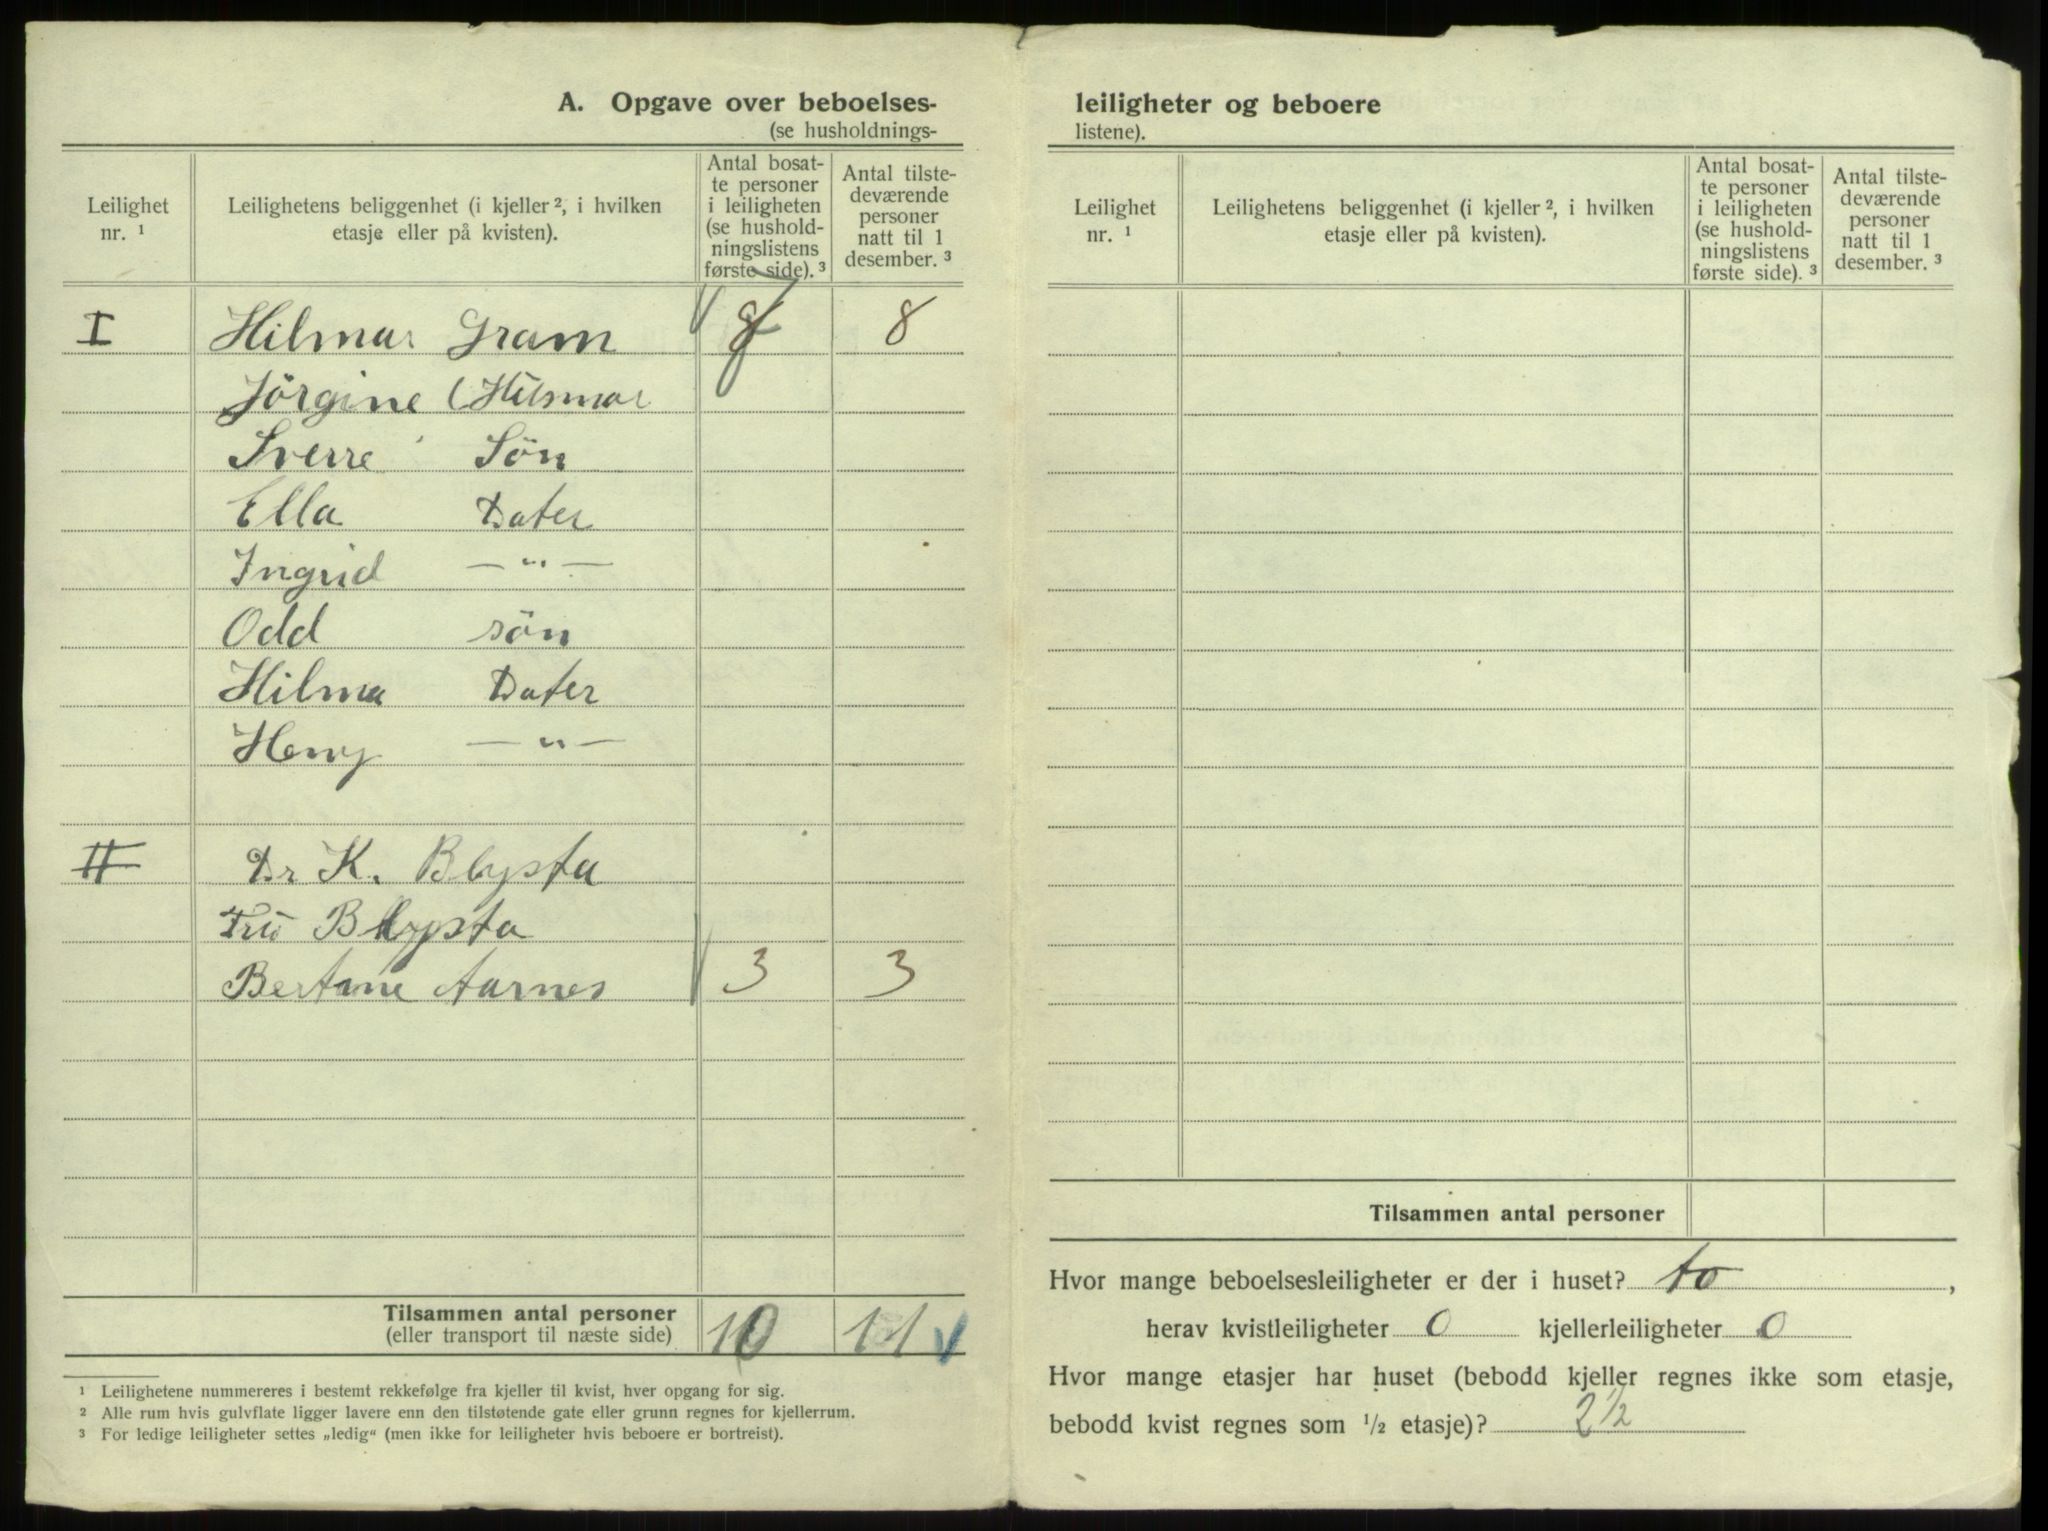 A. Opgave over beboelses-
(se husholdnings-
Leilighet nr. ¹
Leilighetens beliggenhet (i kjeller ², i hvilken etasje eller på kvisten).
Antal bosat-
te personer
i leiligheten
(se hushold-
ningslistens
første side). ³
Antal tilste-
deværende
personer
natt til 1
desember. ³
I Hilmar Gram 8 7 8
Jörgine (Hilsmar
Sverre Sön
Ella Dater
Ingrid — " —
Odd sön
Hilma Dater
Heny — " —
II Dr K. Blysta
Fru Blysta
Bertine Aarnes 3 3
Tilsammen antal personer
(eller transport til næste side) 10 11
¹ Leilighetene nummereres i bestemt rekkefølge fra kjeller til kvist, hver opgang for sig.
² Alle rum hvis gulvflate ligger lavere enn den tilstøtende gate eller grunn regnes for kjellerrum.
³ For ledige leiligheter settes „ledig“ (men ikke for leiligheter hvis beboere er bortreist).
leiligheter og beboere
listene).
Leilighet nr. ¹
Leilighetens beliggenhet (i kjeller ², i hvilken etasje eller på kvisten).
Antal bosat-
te personer
i leiligheten
(se hushold-
ningslistens
første side). ³
Antal tilste-
deværende
personer
natt til 1
desember. ³
Tilsammen antal personer
Hvor mange beboelsesleiligheter er der i huset? to ,
herav kvistleiligheter 0 kjellerleiligheter 0
Hvor mange etasjer har huset (bebodd kjeller regnes ikke som etasje,
bebodd kvist regnes som ½ etasje)? 2½